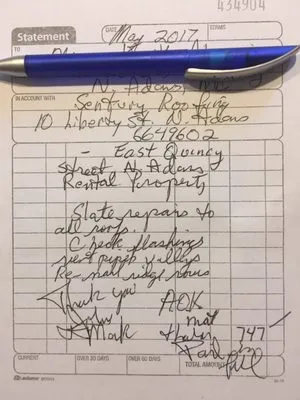 434904
Statement
DATE
May 2017
TERMS
TO
N. Adams, Ma
IN ACCOUNT WITH
Sentury Roofing
10 Liberty St. N. Adams
6649602
- East Quincy
Street N. Adams
Rental Property
Slate repairs to
all roofs.
Check flashings
vent pipes valleys
Re-nail ridge
Thank you AOK
Mark
747
Paid in
full
CURRENT
OVER 30 DAYS
OVER 60 DAYS
TOTAL AMOUNT